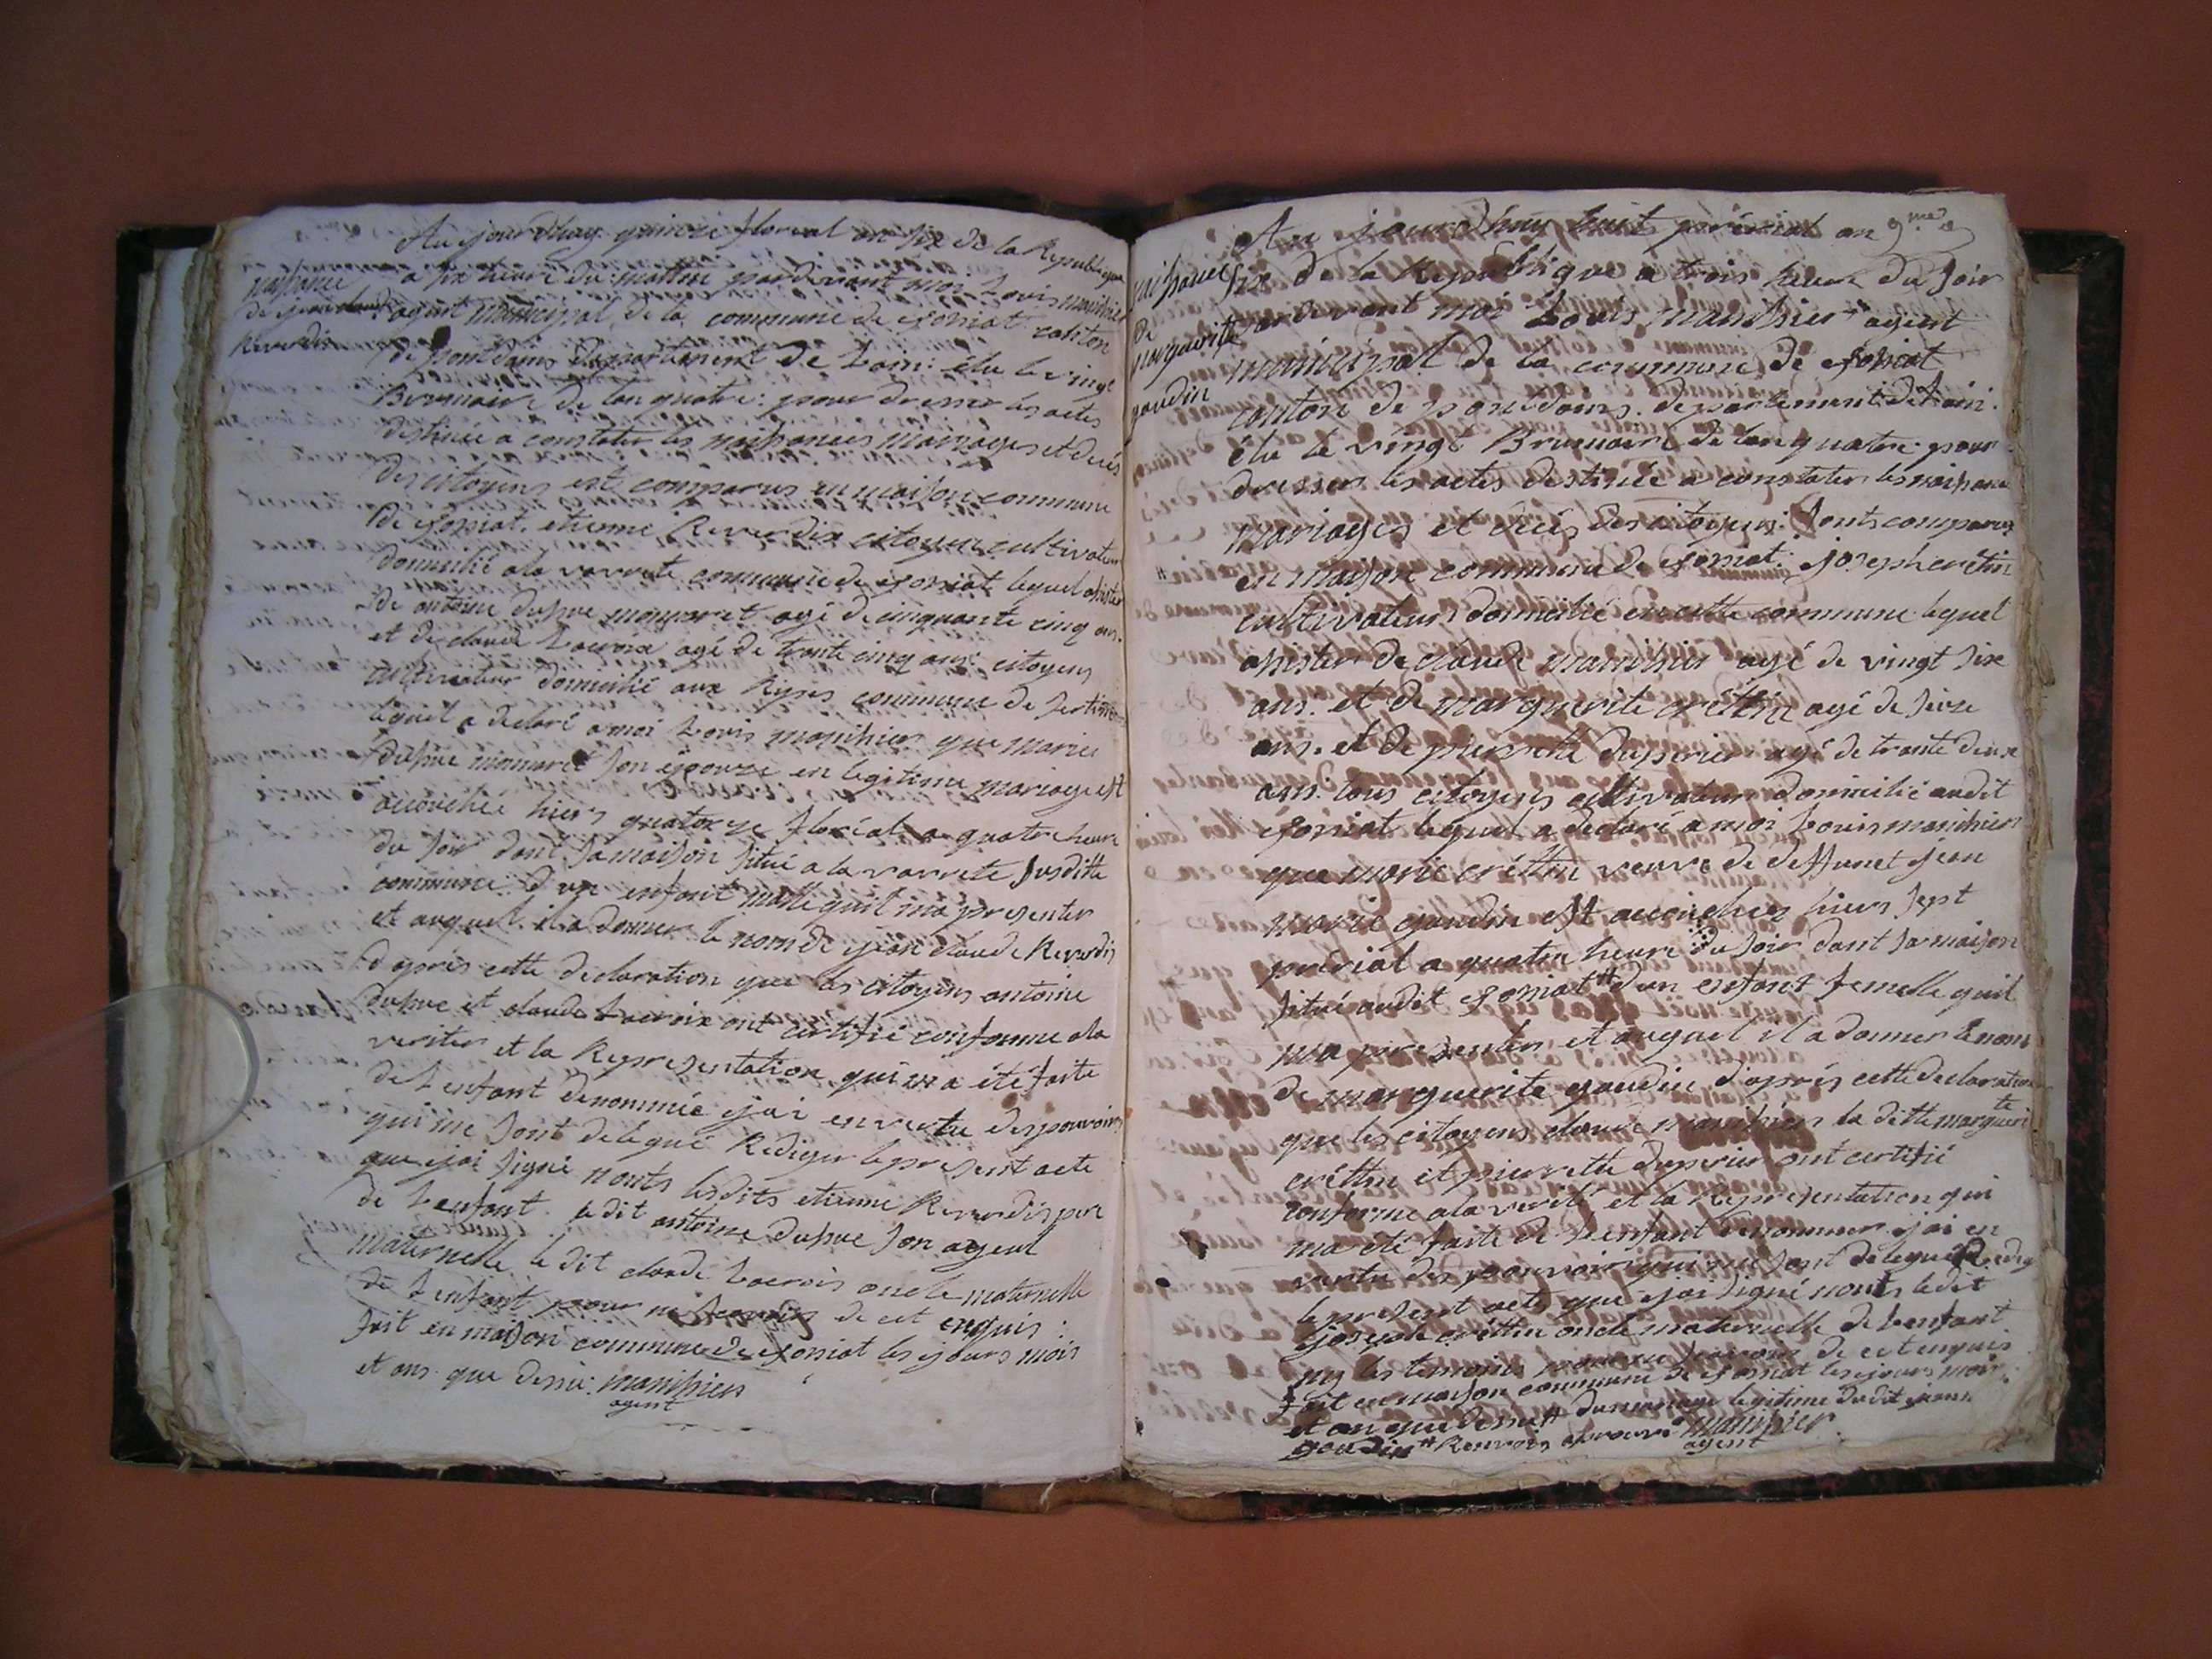 Au jourdhuy quinze floreal an six de la Republique
a six heure du mattin pardevant moi Louis manihier
agent municipal de la commune de
canton
naissance
de jean claude
Reverdis
de pontdains departement de Lain: élu le vingt
Brumaire de lan quatre: pour dresser les actes
destinée a constater les naissances mariages et decés
des citoyens est comparus en maison commune
de etienne Reverdis citoyen cultivateur
domicilié a la vavrete commune de lequel assister
de antoine dupue monmaret agé de cinquante cinq ans.
et de claude Lacroix agé de trante cinq ans: citoyens
cultivateur domicilié aux commune de
lequel a declaré a moi Louis manihier que marie
dupue monmaret son épouze en legitime mariage est
accouchée hiers quatorze floréal a quatre heure
du soir dant sa maison situé a la vavrete susditte
commune d'un enfant malle quil ma presenter
et auquel il a donner le nom de jean claude Reverdis
d'aprés cette declaration que les citoyens antoine
dupue et claude Lacroix ont certifié conforme a la
veriter et la Representation qui ma été faite
de lenfant denommée jai en vertu des pouvoirs
qui me sont delégué Rediger le present acte
que jai signé nonts lesdits etienne Reverdis pere
de Lenfant. ledit antoine dupue son ayeul
maternelle le dit claude Lacroix oncle maternelle
de Lenfant pour ne de cet enquis:
fait en maison commune de les jours mois
et ans que dessu: manihier
agent
Au jourdhuy huit prérial an
six de la Republique a trois heure du soir
pardevant moi Louis manihier agent
naissance
de
marguerite
gaudin
municipal de la commune de
canton de pontdains. departement de Lain.
élu le vingt Brumaire de lan quatre pour
dresser les actes destinée a constater les naissance
mariages et décés des citoyens: sonts comparus
en maison commune de joseph crétin
cultivateur domicilié en cette commune lequel
assister de claude manihier agé de vingt six
ans. et de marguerite crétin agé de seize
ans. et de pierrette duperier agé de trante deux
ans. tous citoyens cultivateur domicilié audit
lequel a declaré a moi Louis manihier
que marie crétin veuve de deffunct jean
marie gaudin est accouchez hiers sept
prérial a quatre heure du soir dant sa maison
situé audit # d'un enfant femelle quil
ma presenter et auquel il a donner le nom
de marguerite gaudin d'aprés cette declaration
que les citoyens claude manihier la ditte marguerite
crétin et pierrette duperier ont certifié
conforme a la verité et la Representation qui
ma été faite de Lenfant denommer jai en
vertu des pouvoirs qui me sont delegué Rediger
le present acte que jai signé nonts ledit
joseph crétin oncle maternelle de lenfant
ny les temoins pour ne de cet enquis
fait en maison commune de les jours mois
et an que dessu # du mariage legitime dudit jean
gaudin # Renvois aprouvé manihier
agent